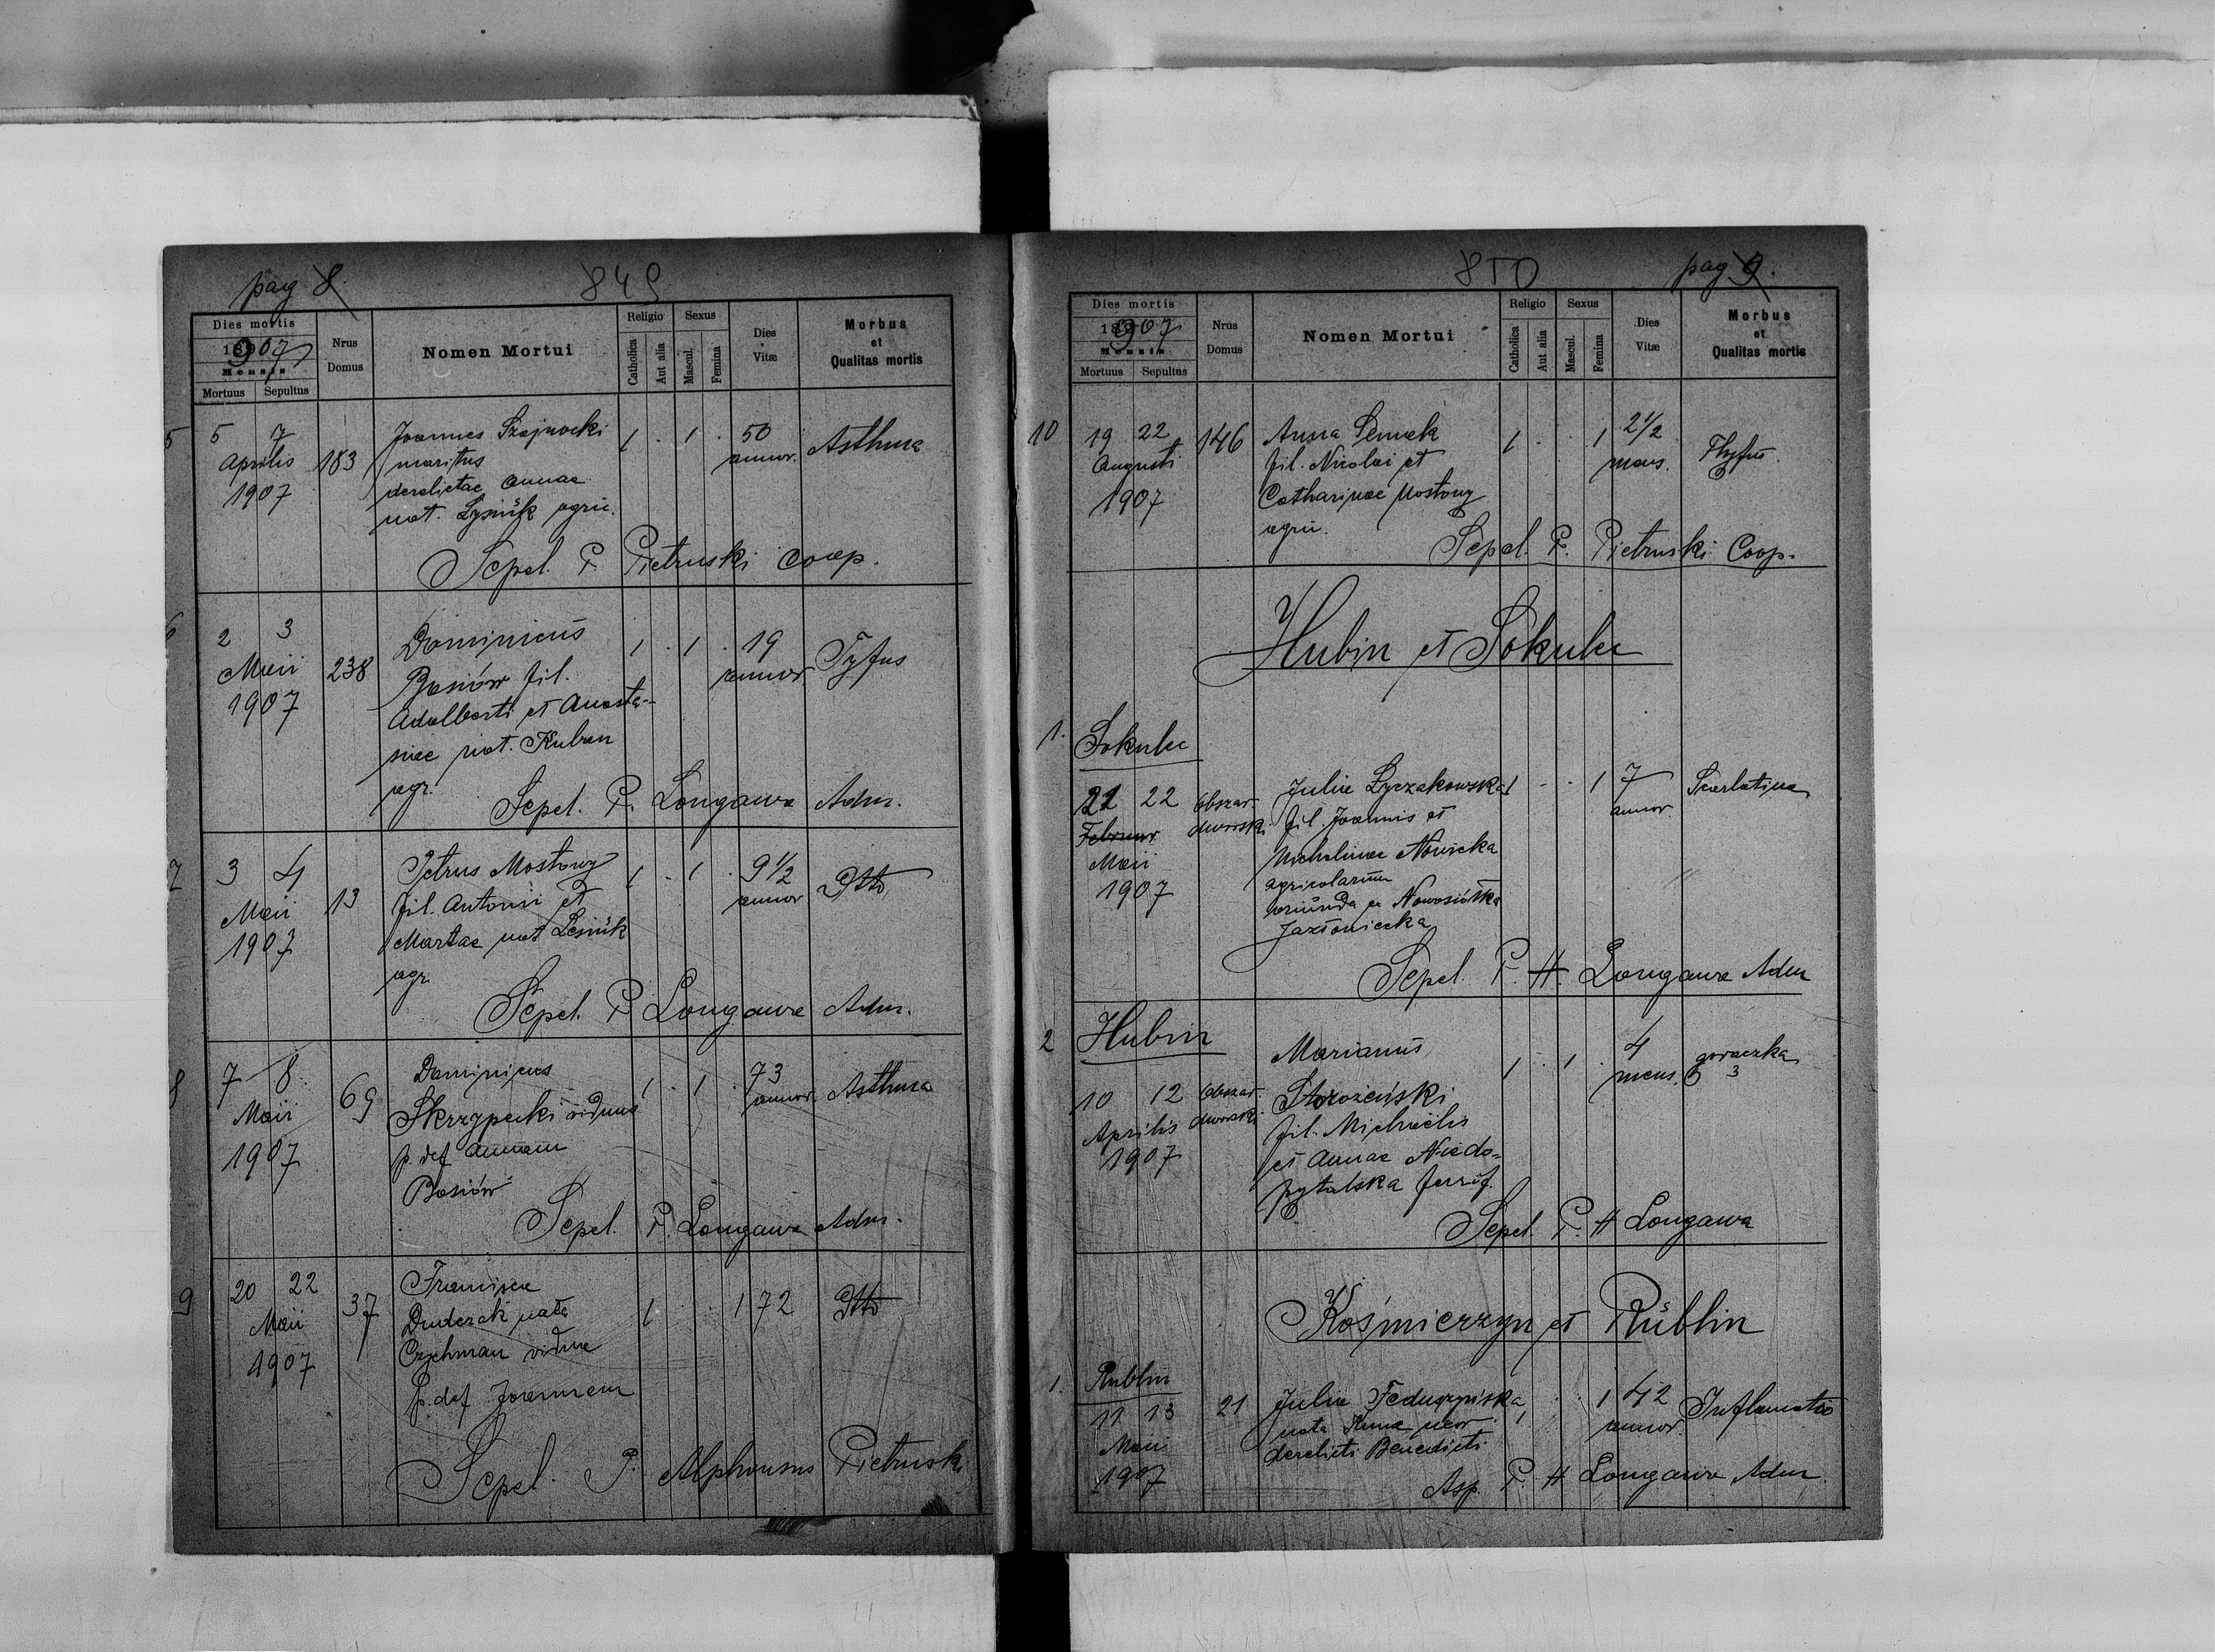 pag 8.
849
Dies mortis
1907
Mensis
Mortuus
Sepultus
Nrus
Domus
Nomen Mortui
Religio
Catholica
Aut alia
Sexus
Mascul.
Femina
Dies
Vitæ
Morbus
et
Qualitas mortis
5
5 7
Aprilis
1907
183
Joannes Szajnocki
maritus
derelictae Annae
nat. Łysiük agric.
1 . 1 .
50
annor.
Asthma
Sepel. P. Pietruski Coop.
6
2 3
Maii
1907
238
Dominicus
Basiów fil.
Adalberti et Anasta-
siae nat. Kuban
agr.
1 . 1 .
19
annor.
Tyfus
Sepel. P. Longawa Adm.
7
3 4
Maii
1907
13
Petrus Mostowy
fil. Antonii et
Martae nat Lesiük
agr.
1 . 1 .
9 1/2
annor
Dtto
Sepel. P Longawa Adm.
8
7 8
Maii
1907
69
Dominicus
Skrzypecki viduus
p. def Annam
Basiów
1 . 1 .
73
annor.
Asthma
Sepel. P. Longawa Adm.
9
20 22
Maii
1907
37
Francisca
Duderek nata
Czehman vidua
p. def Joannem
1 . . 1
72
Dtto
Sepel. P. Alphonsus Pietruski
850
pag 9.
Dies mortis
1907
Mensis
Mortuus
Sepultus
Nrus
Domus
Nomen Mortui
Religio
Catholica
Aut alia
Sexus
Mascul.
Femina
Dies
Vitæ
Morbus
et
Qualitas mortis
10
19 22
Augusti
1907
146
Anna Semek
fil. Nicolai et
Catharinae Mostowy
agric.
1 . . 1
2 1/2
mens.
Thyfus
Sepel. P. Pietruski Coop.
Hubin et Sokulec
1.
Sokulec
21 22
Februar
Maii
1907
obszar
dworski
Julia Łyczakowska
fil. Joannis et
Michelinae Nowicka
agricolarum
oriunda ex Nowosiółka
Jazłowiecka
1 - . 1
7
annor.
Scarlatina
Sepel. P. H. Longawa Adm
2
Hubin
10 12
Aprilis
1907
obszar
dworski
Marianus
Storożeński
fil. Michaelis
et Annae Niedo=
pytalska
1 . 1 .
4
mens.
gorączka
Sepel. P. H Longawa
Kośmierzyn et Rüblin
1.
Rublin
11 13
Maii
1907
21
Julia
nata
derelicti Benedicti
1 . . 1
42
annor.
Inflamatio
Asp. P. H Longawa Adm.